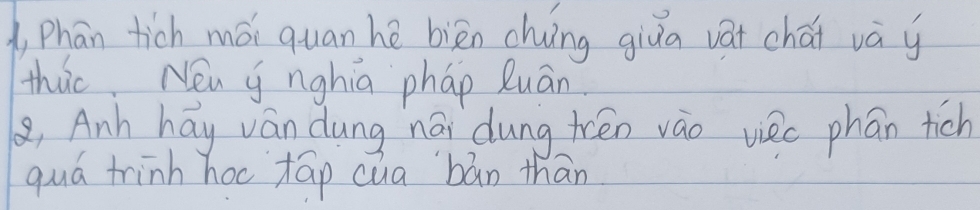 1, Phân tích mối quan hệ biện chứng giữa vật chất và ý
thức. Nêu ý nghĩa pháp luận.
2, Anh hãy vận dụng nội dung trên vào việc phân tích
quá trình học tập của bản thân.